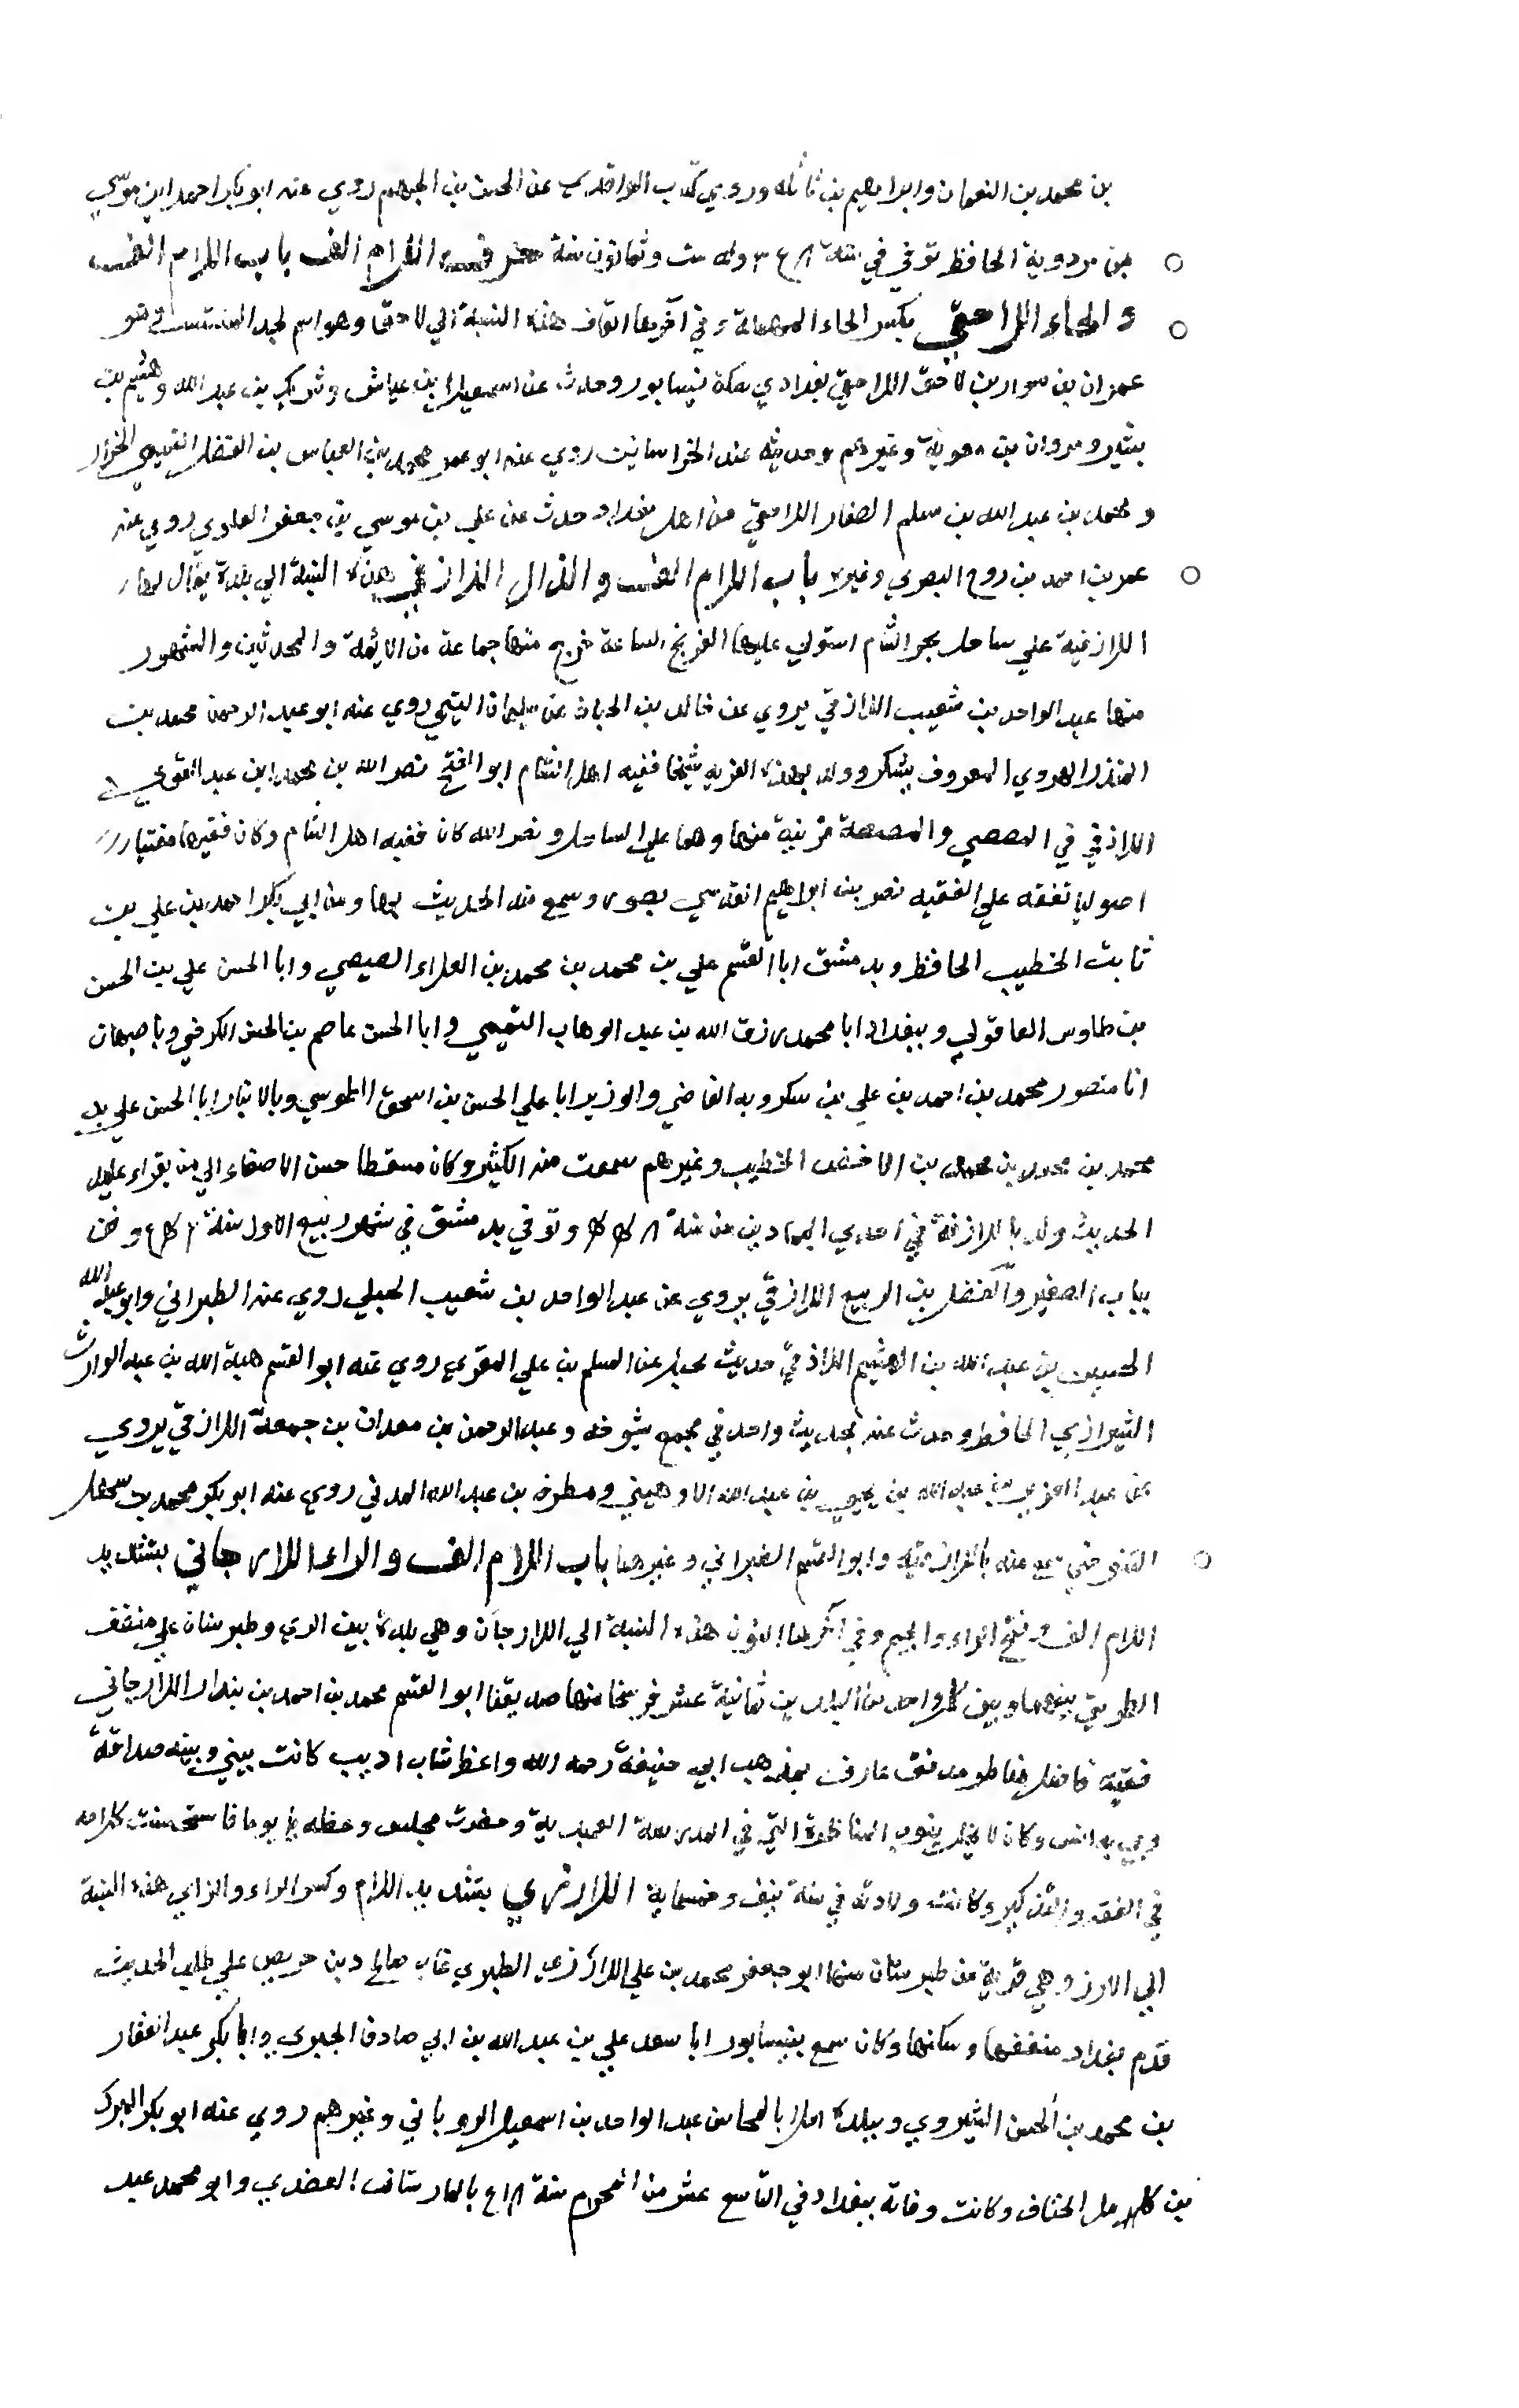 بن محمد بن النعمان وابراهيم بن نائله وروي كتب الواقدي عن الحسن بن الجهم روي عنه ابو بكر احمد ابن موسي
بن مردوية الحافظ توفي في سنة وله ست وثمانون سنة حرف اللام الف باب اللام الف
والحاء اللاحقي بكسر الحاء المهملة وفي آخرها القاف هذه النسبة الي لاحق وهو اسم لجد المنتسب وهو
عمران بن سوار بن لاحق اللاحقي بغدادي سكن نيسابور وحدث عن اسمعيل بن عياش وشريك بن عبد الله وهشيم بن
بشير ومروان بن معوية وغيرهم وحديثه عند الخراسانيين روي عنه ابو عمر محمد بن العباس بن الفضل الخزار
ومحمد بن عبد الله بن مسلم الصفار اللاحقي من اهل بغداد حدث عن علي بن موسي بن جعفر العلوي روي عنه
عمر بن احمد بن روح البصري وغيره باب اللام الف والذال اللاذقي هذه النسبة الي بلدة يقال لها
اللاذقية علي ساحل بحر الشام استولي عليها الفرنج الساعة خرج منها جماعة من الايمة والمحدثين والمشهور
منها عبد الواحد بن شعيب اللاذقي يروي عن خالد بن الحباب عن سليمان التيمي روي عنه ابو عبد الرحمن محمد بن
المنذر الهروي المعروف بشكر وولد بهذه القريه شيخنا فقيه اهل الشام ابو الفتح نصر الله بن محمد ابن عبد القوي
اللاذقي في المصيصي والمصيصة قريبة منها وهما علي الساحل ونصر الله كان فقيه اهل الشام وكان فقيها مفتيا
اصوليا تفقه علي الفقيه نصر بن ابراهيم المقدسي بصور وسمع منه الحديث بها ومن ابي بكر احمد بن علي بن
ثابت الخطيب الحافظ وبدمشق ابا القسم علي بن محمد بن محمد بن العلاء المصيصي وابا الحسن علي بن الحسن
بن طاوس العاقولي وببغداد ابا محمد رزق الله بن عبد الوهاب التميمي وابا الحسن عاصم بن الحسن الكرخي وباصبهان
انا منصور محمد بن احمد بن علي بن سكرويه القاضي والوزير ابا علي الحسن بن اسحق الطوسي وبالانبار ابا الحسن علي بن
محمد بن محمد بن محمد بن الاخضر الخطيب وغيرهم سمعت منه الكثير وكان متيقظا حسن الاصغاء الي من يقراء عليه
الحديث ولد باللاذقية في احدي الجمادين من سنة وتوفي بدمشق في شهر ربيع الاول سنة ودفن
بباب الصغير والفضل بن الربيع اللاذقي يروي عن عبد الواحد بن شعيب الجبلي روي عنه الطبراني وابو عبد الله
الحسين بن عبد الله بن الهيثم اللاذقي حديث بجبل عن المسلم بن علي المقري روي عنه ابو القسم هبة الله بن عبد الوارث
الشيرازي الحافظ وحدث عنه بحديث واحد في معجم شيوخه وعبد الرحمن بن معدان بن جمعة اللاذقي يروي
عن عبد العزيز بن عبد الله بن يحيي بن عبد الله الاويسي ومطرف بن عبد الله المدني روي عنه ابو بكر محمد بن سهل
سمع عنه باللاذقيه وابو القسم الطبراني وغيرهما باب اللام الف والراء اللارجاني بتشديد
اللام الف وفتح الراء والجيم وفي آخرها النون هذه النسبة الي اللارجان وهي بلدة بين الري وطبرستان علي منتصف
الطريق بينهما وبين كل واحد من البلدين ثمانية عشر فرسخا منها صديقنا ابو القسم محمد بن احمد بن بندار اللارجاني
فقيه فاضل مناظر مدقق عارف بمذهب ابي حنيفة رحمه الله واعظ شاب اديب كانت بيني وبينه صداقة
وبي به انس وكان لا يخل بنوب المناظرة التي في المدرسة العميدية وحضرت مجلس وعظه يوما فاستحسنت كلامه
في الفقه والتذكير وكانت ولادته في سنة نيف وخمسماية اللارزي بتشديد اللام وكسر الراء والزاي هذه النسبة
الي الارز وهي قرية من طبرستان منها ابو جعفر محمد بن علي اللارزي الطبري شاب صالح دين حريص علي طلب الحديث
قدم بغداد متفقها وسكنها وكان سمع بنيسابور ابا سعد علي بن عبد الله بن ابي صادق الحيري وابا بكر عبد الغفار
بن محمد بن الحسن الشيروي وببلده امل ابا المحاسن عبد الواحد بن اسمعيل الروياني وغيرهم روي عنه ابو بكر المبرك
بن كامل الخفاف وكانت وفاته ببغداد في التاسع عشر من المحرم سنة بالمارستان العضدي وابو محمد عبد